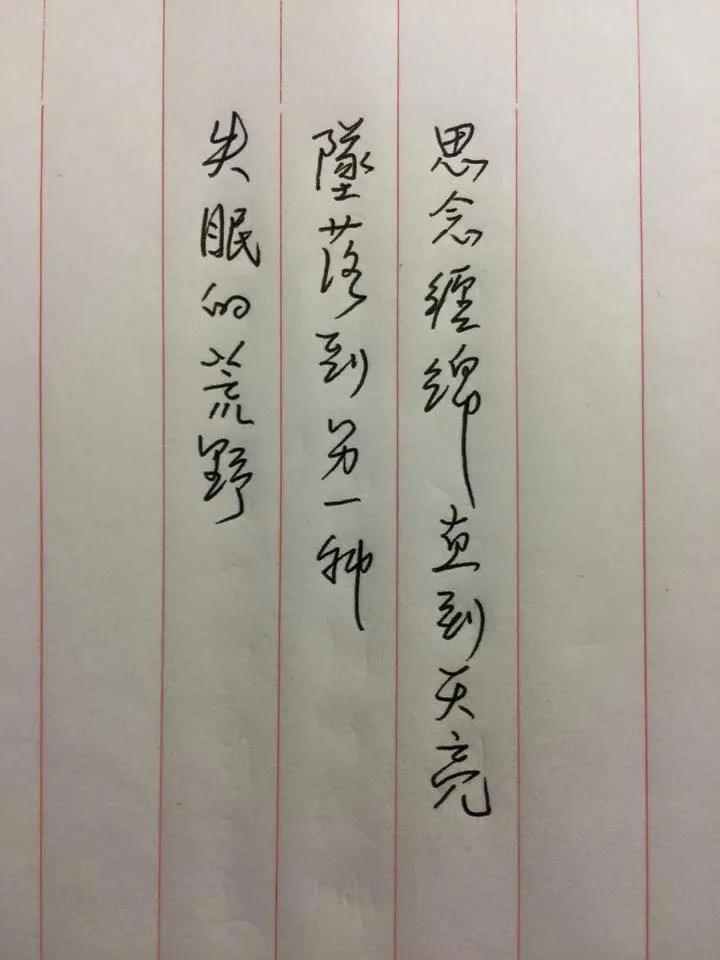 思念纏綿直到天亮
墜落到另一种
失眠的荒野